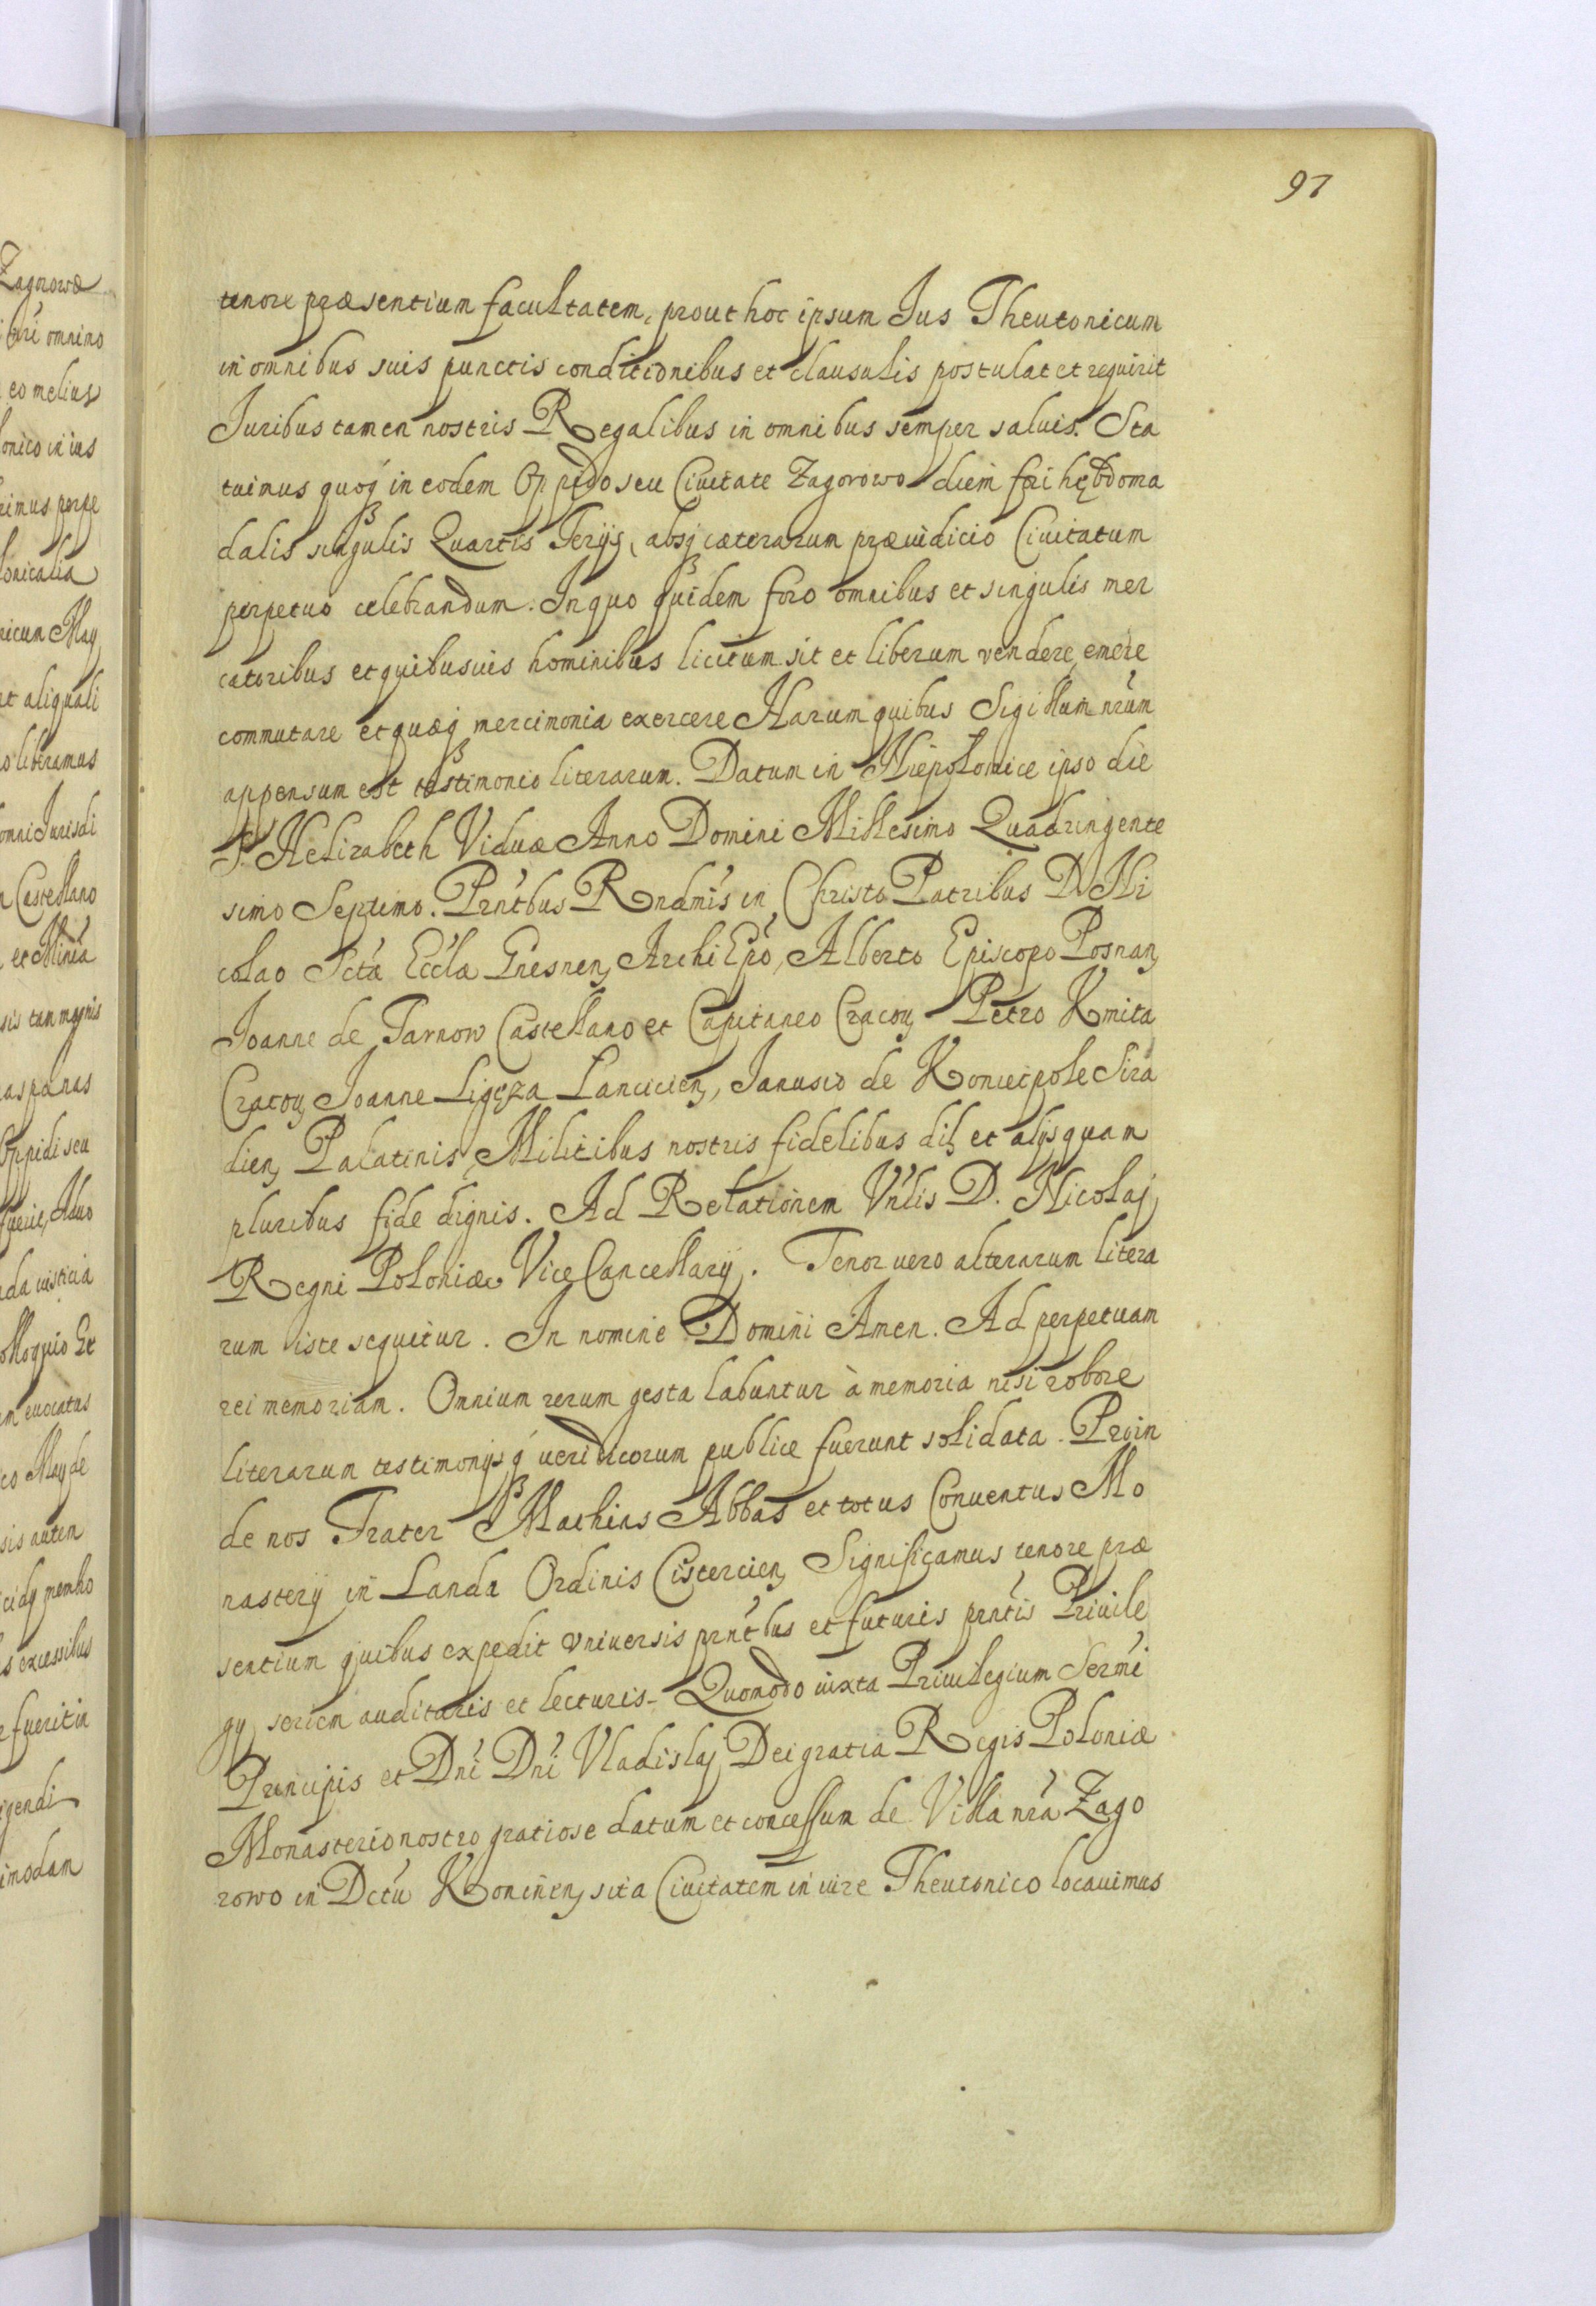 97
tenore præsentium facultatem, prout hoc ipsum Ius Theutonicum
in omnibus suis punctis conditionibus et clausulis postulat et requirit
Iuribus tamen nostris Regalibus in omnibus semper saluis. Sta
tuimus quoq́ in eodem Oppido seu Ciuitate Zagorowo diem fori hebdoma
dalis singulis Quartis Ferijs, absq cæterarum præiudicio Ciuitatum
perpetuo celebrandum. In quo quidem foro omnibus et singulis mer
catoribus et quibusuis hominibus licitum sit et liberum vendere, emere
commutare et quæq mercimonia exercere Harum quibus Sigillum nŕum
appensum est testimonio literarum. Datum in Niepolomice ipso die
S. Helizabeth Viduæ Anno Domini Millesimo Quadringente
simo Septimo. Prńtbus Rndmís in Christo Patribus D. Ni
colao Sctǽ Ecclæ Gnesnen, Archi Epó, Alberto Episcopo Posnan,
Joanne de Tarnow Castellano et Capitaneo Cracou, Petro Kmita
Cracou, Joanne Ligęza Lancicien, Janusio de Koniecpole Sira
dien, Palatinis, Militibus nostris fidelibus dil, et alijs quam
pluribus fide dignis. Ad Relationem Vńlis D. Nicolaj
Regni Poloniæ Vice Cancellarij. Tenor uero alterarum litera
rum iste sequitur. In nomine Domini Amen. Ad perpetuam
rei memoriam. Omnium rerum gesta labuntur à memoria nisi robore
literarum testimonijsq́ ueridicorum publice fuerunt solidata. Proin
de nos Frater Mathias Abbas et totus Conuentus Mo
nasterij in Landa Ordinis Cistercien, Significamus tenore præ
sentium quibus expedit vniuersis prńtbus et futuris prńtis Priuile
gij seriem audituris et lecturis. Quomodo iuxta Priuilegium Sermí
Principis et Dńi Dńi Vladislaj Dei gratia Regis Poloniæ
Monasterio nostro gratiose datum et concessum de Villa nŕa Zago
rowo in Dctú Koninen, sita Ciuitatem in iure Theutonico locauimus